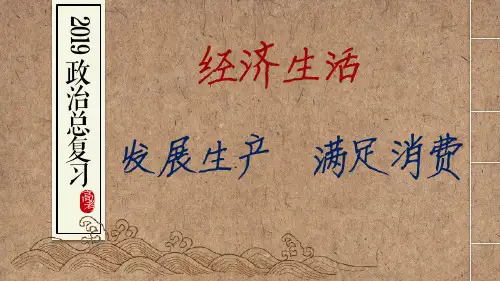 2019政治总复习
高考
经济生活
发展生产 满足消费